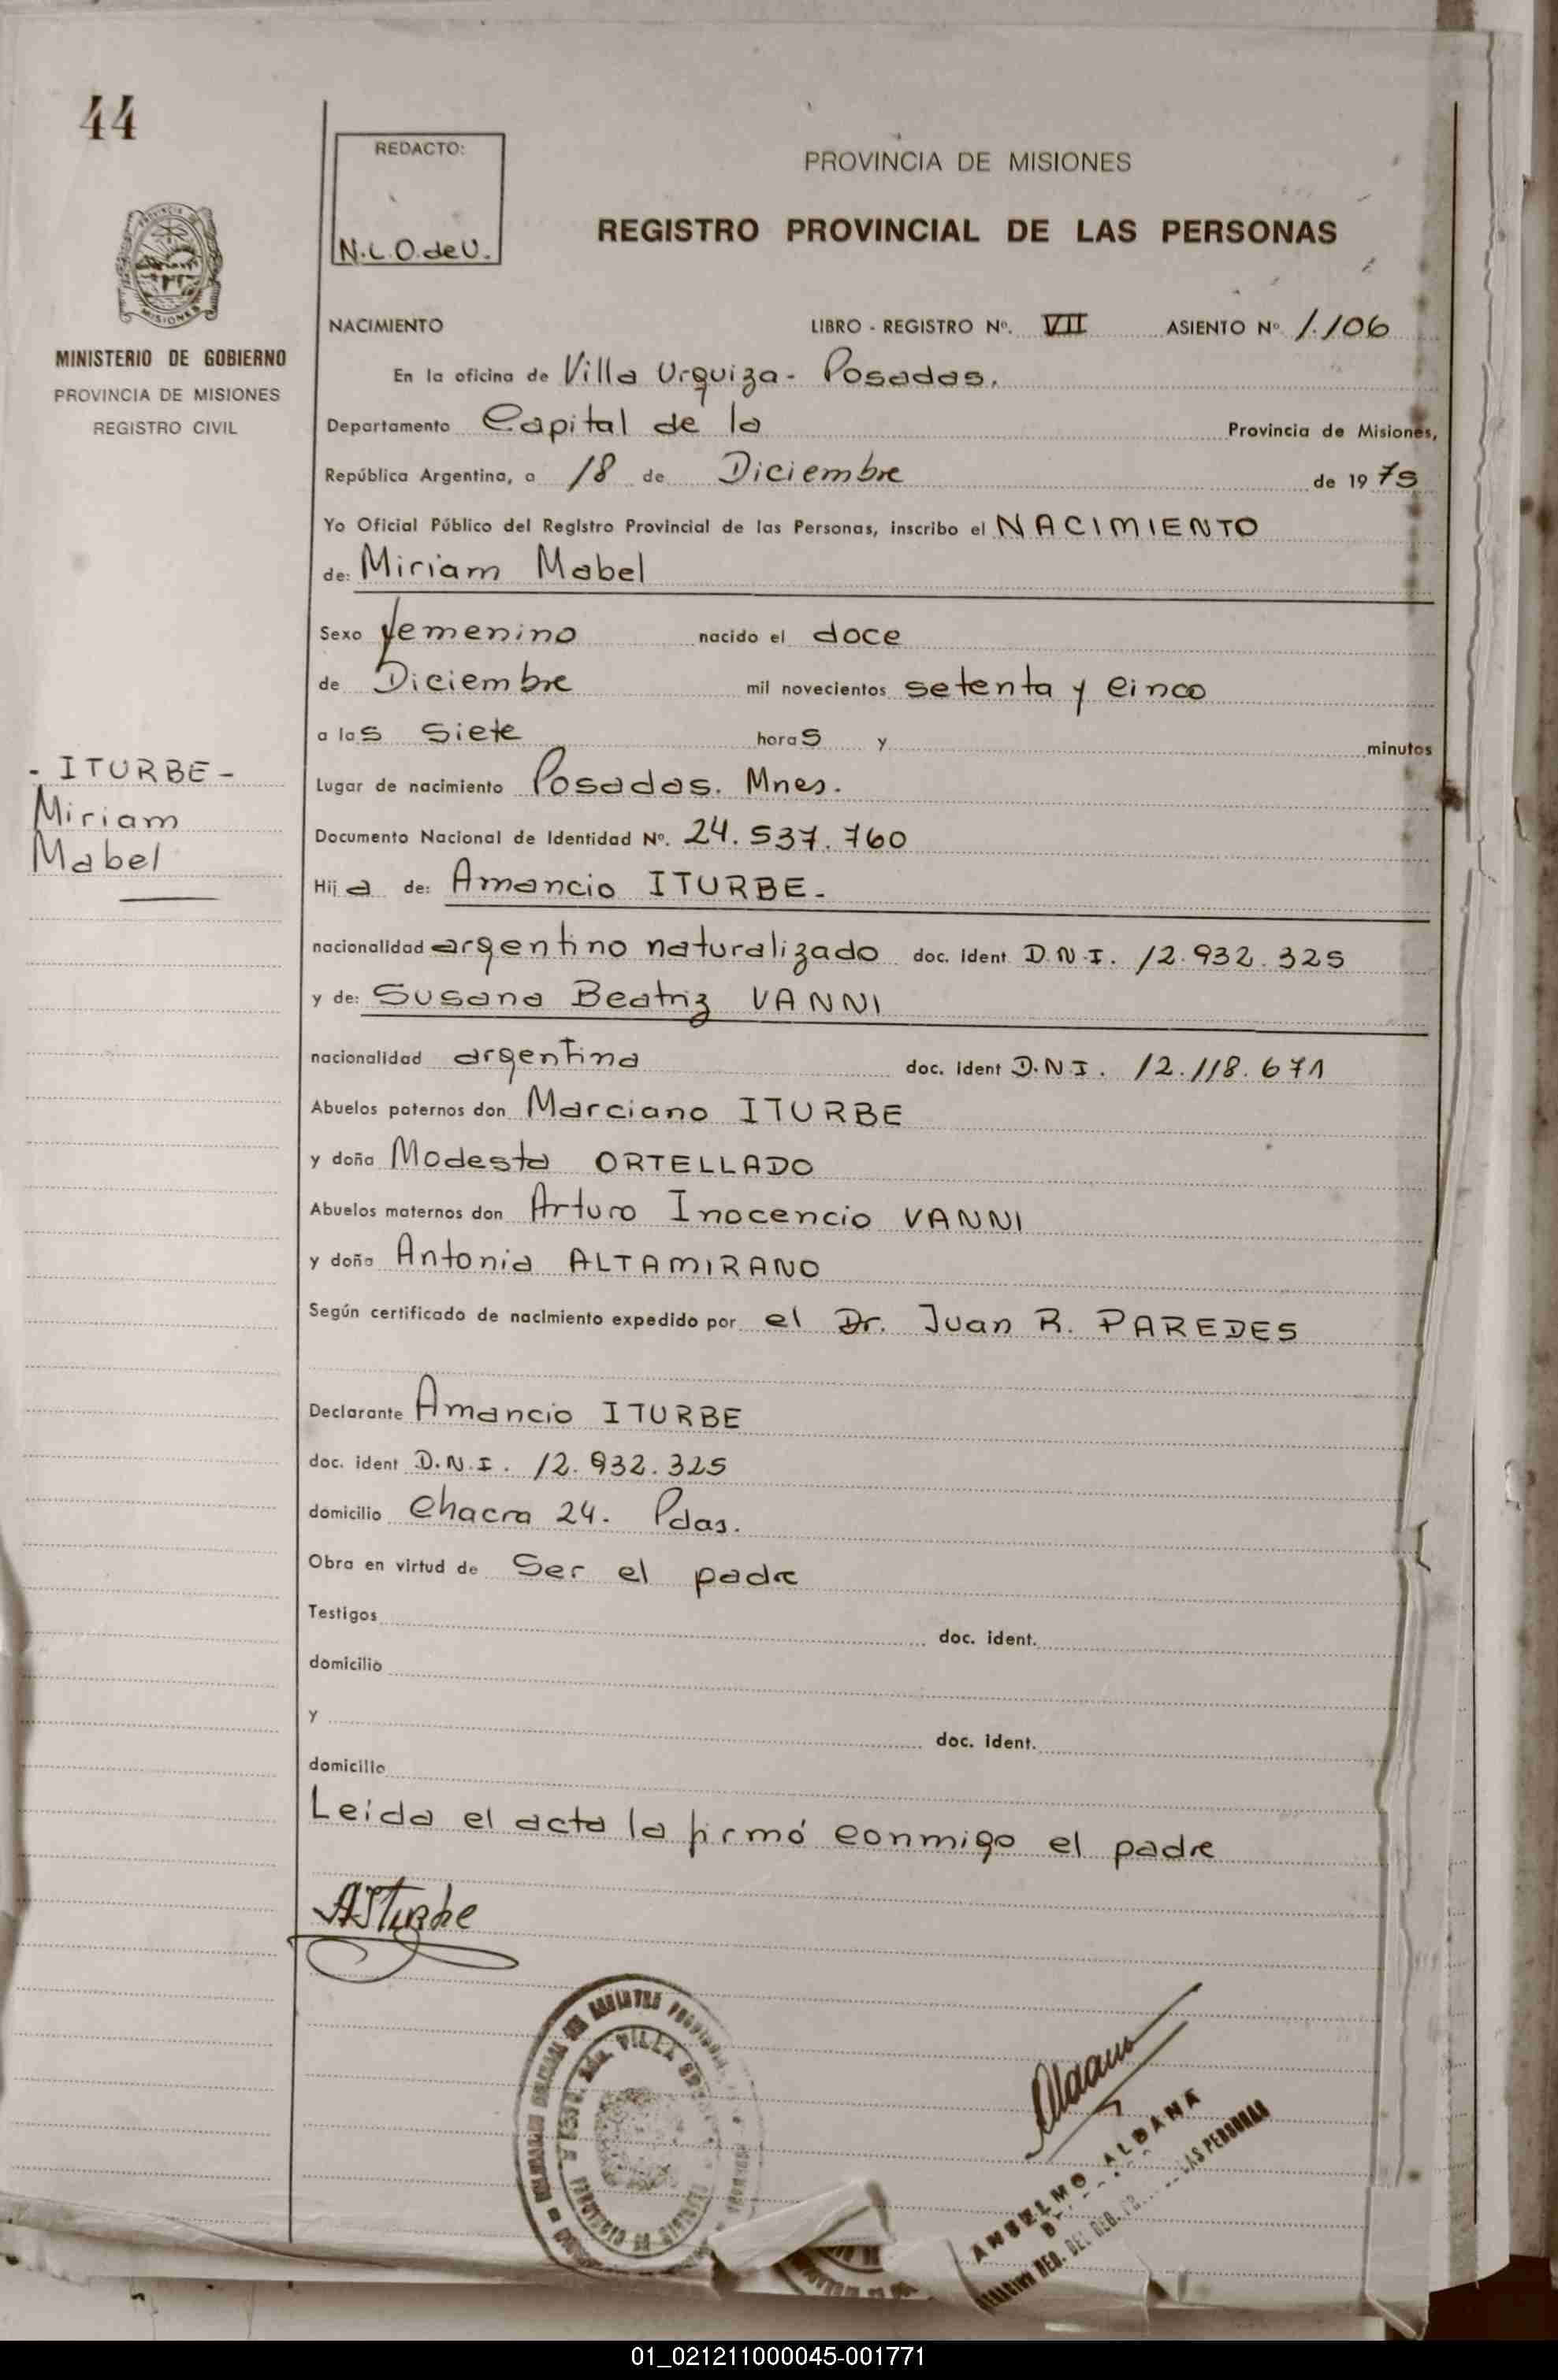 44
REDACTO:
N.L.O. de U.
PROVINCIA DE MISIONES
REGISTRO PROVINCIAL DE LAS PERSONAS
MISIONES
MINISTERIO DE GOBIERNO
PROVINCIA DE MISIONES
REGISTRO CIVIL
NACIMIENTO LIBRO - REGISTRO Nº. VII ASIENTO Nº 1.106
En la oficina de Villa Urquiza - Posadas.
Departamento Capital de la Provincia de Misiones,
República Argentina, a 18 de Diciembre de 1975
Yo Oficial Público del Registro Provincial de las Personas, inscribo el NACIMIENTO
de: Miriam Mabel
Sexo femenino nacido el doce
de Diciembre mil novecientos setenta y cinco
a las siete horas y minutos
- ITURBE -
Miriam
Mabel
Lugar de nacimiento Posadas. Mnes.
Documento Nacional de Identidad Nº. 24.537.760
Hija de: Amancio ITURBE.
nacionalidad argentino naturalizado doc. Ident D.N.I. 12.932.325
y de: Susana Beatriz VANNI
nacionalidad argentina doc. ident D.N.I. 12.118.671
Abuelos paternos don Marciano ITURBE
y doña Modesta ORTELLADO
Abuelos maternos don Arturo Inocencio VANNI
y doña Antonia ALTAMIRANO
Según certificado de nacimiento expedido por el Dr. Juan R. PAREDES
Declarante Amancio ITURBE
doc. ident D.N.I. 12.932.325
domicilio Chacra 24. Pdas.
Obra en virtud de Ser el padre
Testigos doc. ident.
domicilio
y doc. ident.
domicilio
Leida el acta la firmó conmigo el padre
AITurbe
VILLA
ANSELMO ALDANA
DEL REG. LAS PERSONAS
01_021211000045-001771